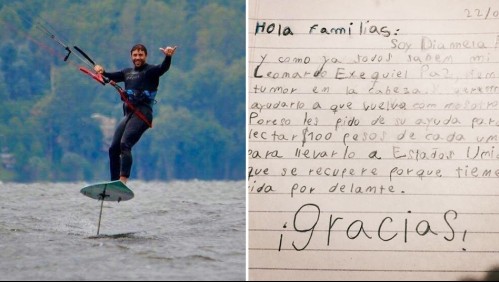 22/0
Hola Familias:
Soy Diannera
y como ya todos saben mi
Leonardo Exequiel Paz,
tumor en la cabeza y
ayudarlo a que vuelva com
Por eso les pido de su ayuda para
lectar $100 pesos de cada um
para llevarlo a Estados Umi
que se recupere porque tieme
ida por delamte.
¡Gracias!